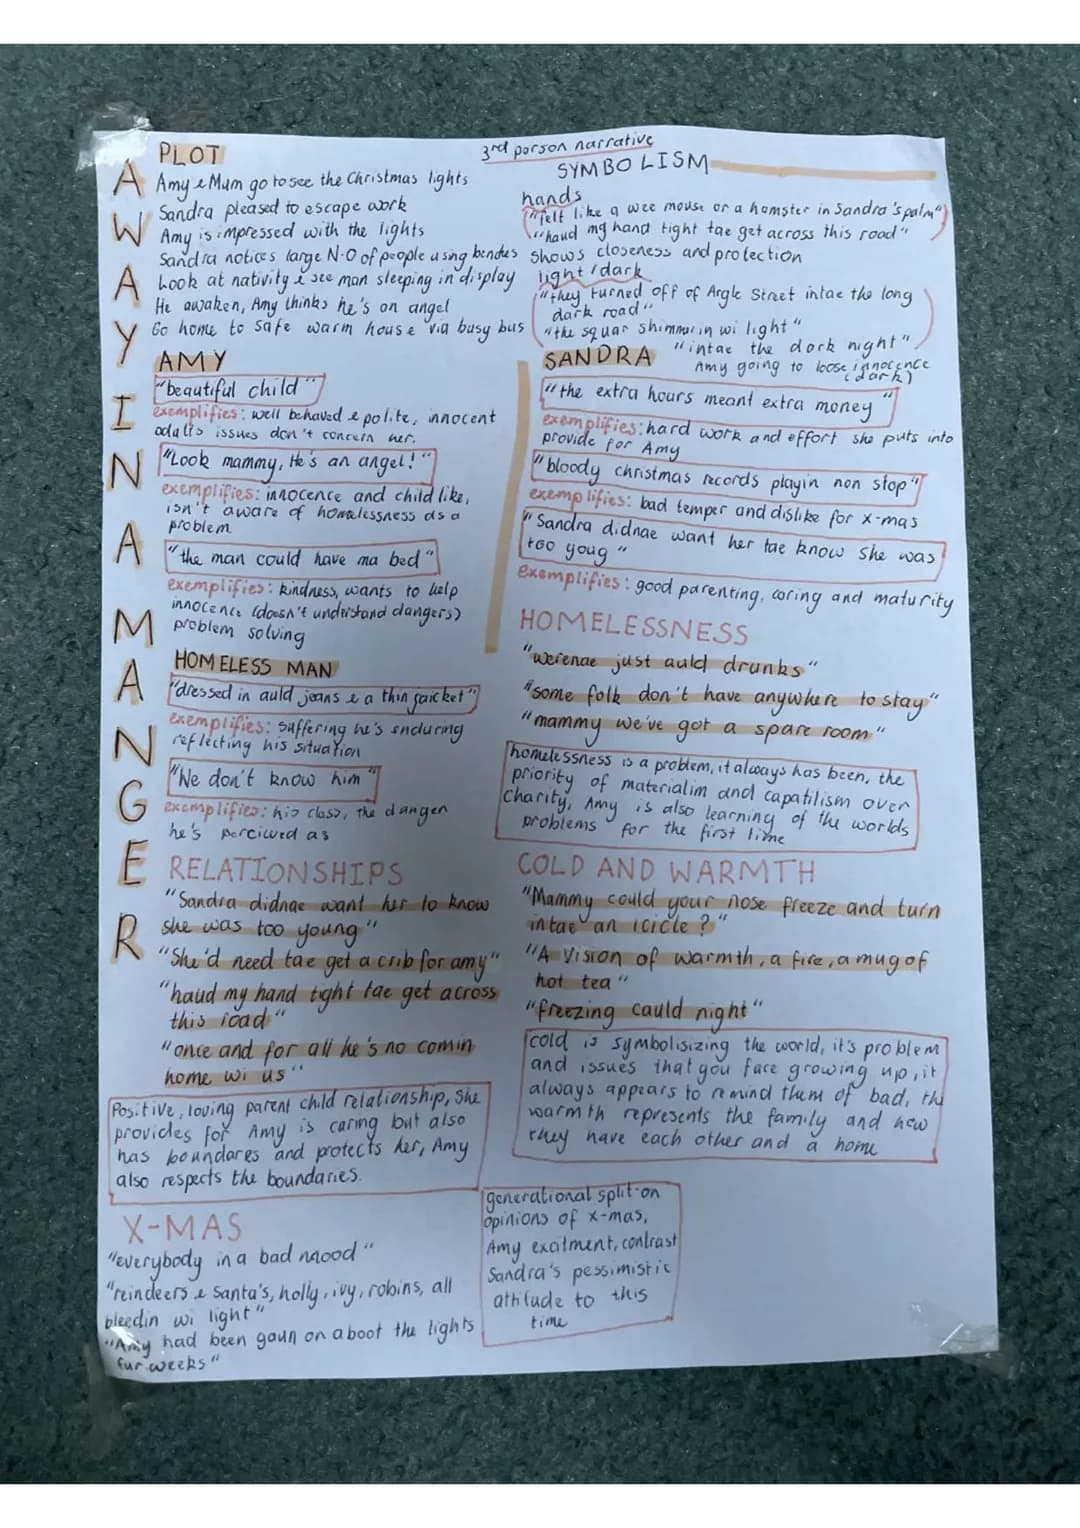 AWAY IN A MANGER
3rd person narrative
PLOT
Amy & Mum go to see the Christmas lights
Sandra pleased to escape work
Amy is impressed with the lights
Sandra notices large N.O of people using benches
Look at nativity & see man sleeping in display
He awaken, Amy thinks he's an angel
Go home to safe warm house via busy bus
SYMBOLISM
hands
"felt like a wee mouse or a hamster in Sandra's palm"
"haud my hand tight tae get across this road"
shows closeness and protection
light/dark
"they turned off of Argle Street intae the long
dark road"
"the squar shimmurin wi light"
"intae the dark night"
Amy going to loose innocence
(dark)
AMY
"beautiful child"
exemplifies: well behaved & polite, innocent
adults issues don't concern her.
"Look mammy, He's an angel!"
exemplifies: innocence and child like,
isn't aware of homelessness as a
problem
"the man could have ma bed"
exemplifies: kindness, wants to help
innocence (doesn't understand dangers)
problem solving
SANDRA
"the extra hours meant extra money"
exemplifies: hard work and effort she puts into
provide for Amy
"bloody christmas records playin non stop"
exemplifies: bad temper and dislike for x-mas
"Sandra didnae want her tae know she was
too youg"
exemplifies: good parenting, caring and maturity
HOMELESS MAN
"dressed in auld jeans & a thin jaicket"
exemplifies: suffering he's enduring
reflecting his situation
"We don't know him"
exemplifies: his class, the danger
he's percieved as
HOMELESSNESS
"werenae just auld drunks"
"some folk don't have anywhere to stay"
"mammy we've got a spare room"
homelessness is a problem, it always has been, the
priority of materialim and capatilism over
charity, Amy is also learning of the worlds
problems for the first time
RELATIONSHIPS
"Sandra didnae want her to know
she was too young"
"She'd need tae get a crib for amy"
"haud my hand tight tae get across
this road"
"once and for all he's no comin
home wi us"
Positive, loving parent child relationship, She
provides for Amy is caring but also
has boundares and protects her, Amy
also respects the boundaries.
COLD AND WARMTH
"Mammy could your nose freeze and turn
intae an icicle?"
"A vision of warmth, a fire, a mug of
hot tea"
"freezing cauld night"
cold is symbolisizing the world, it's problem
and issues that you face growing up, it
always appears to remind them of bad, the
warmth represents the family and how
they have each other and a home
X-MAS
"everybody in a bad mood"
"reindeers & Santa's, holly, ivy, robins, all
bleedin wi light"
"Amy had been gaun on aboot the lights
fur weeks"
generational split on
opinions of x-mas,
Amy excitment, contrast
Sandra's pessimistic
attitude to this
time